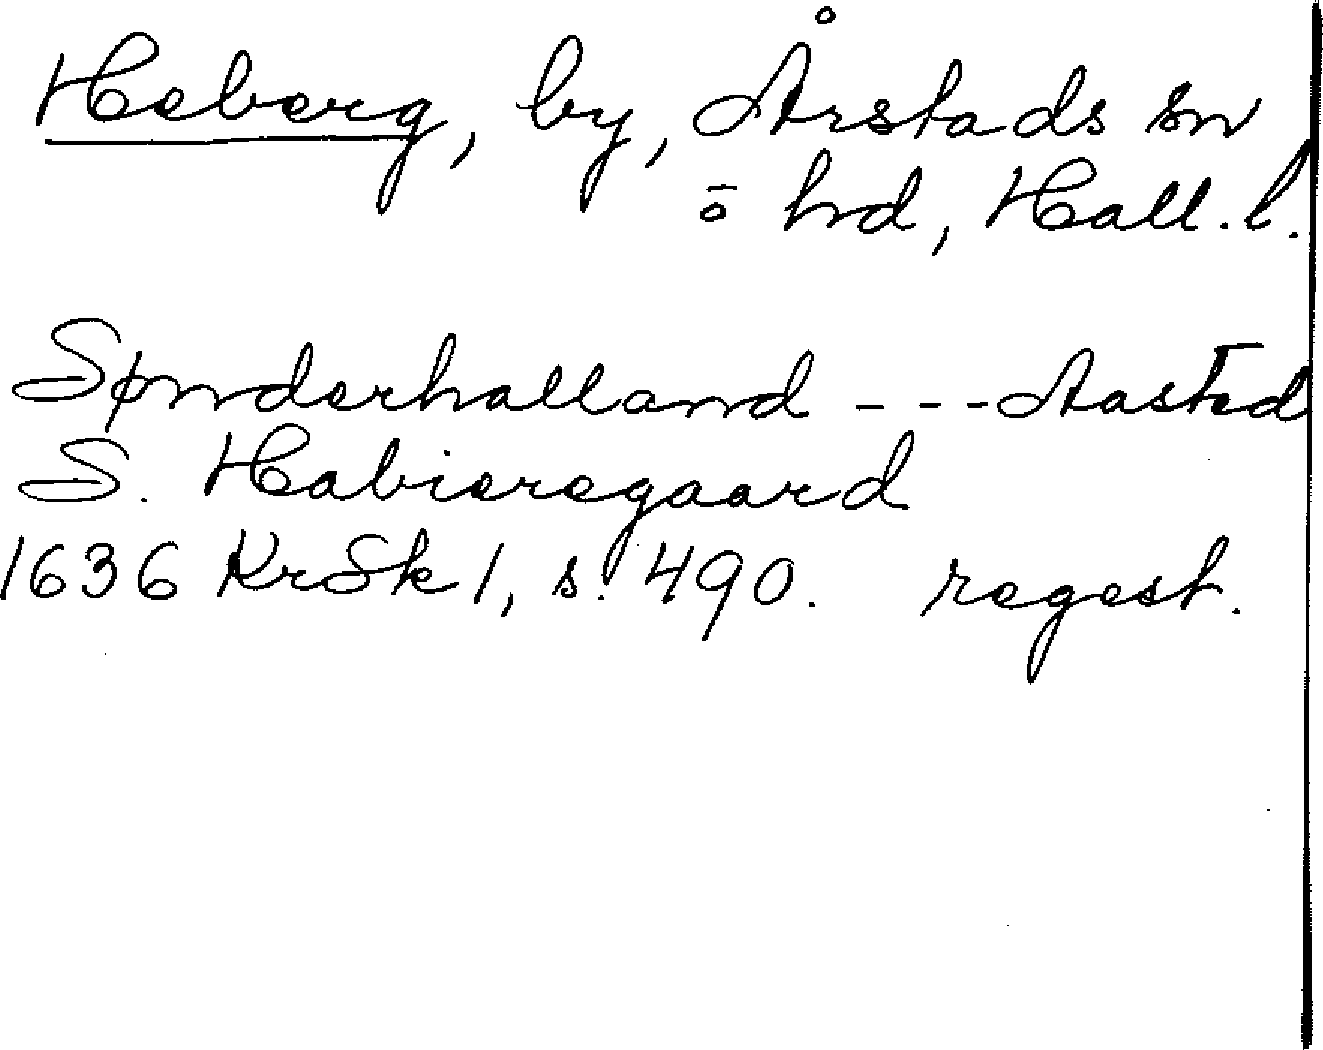 Heberg, by, Årstads sn
o hd, Hall. l.
Sønderhalland - - - Aasted
S. Habieregaard
1636 KrSk 1, s. 490. regest.